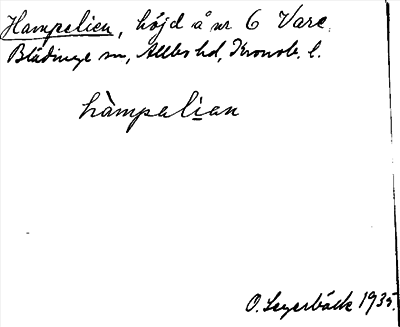 Hampelien, höjd å nr 6 Vare.
Blädinge sn, Allbo hd, Kronob. l.
hàmpalian
O. Leyerbäck 1935.